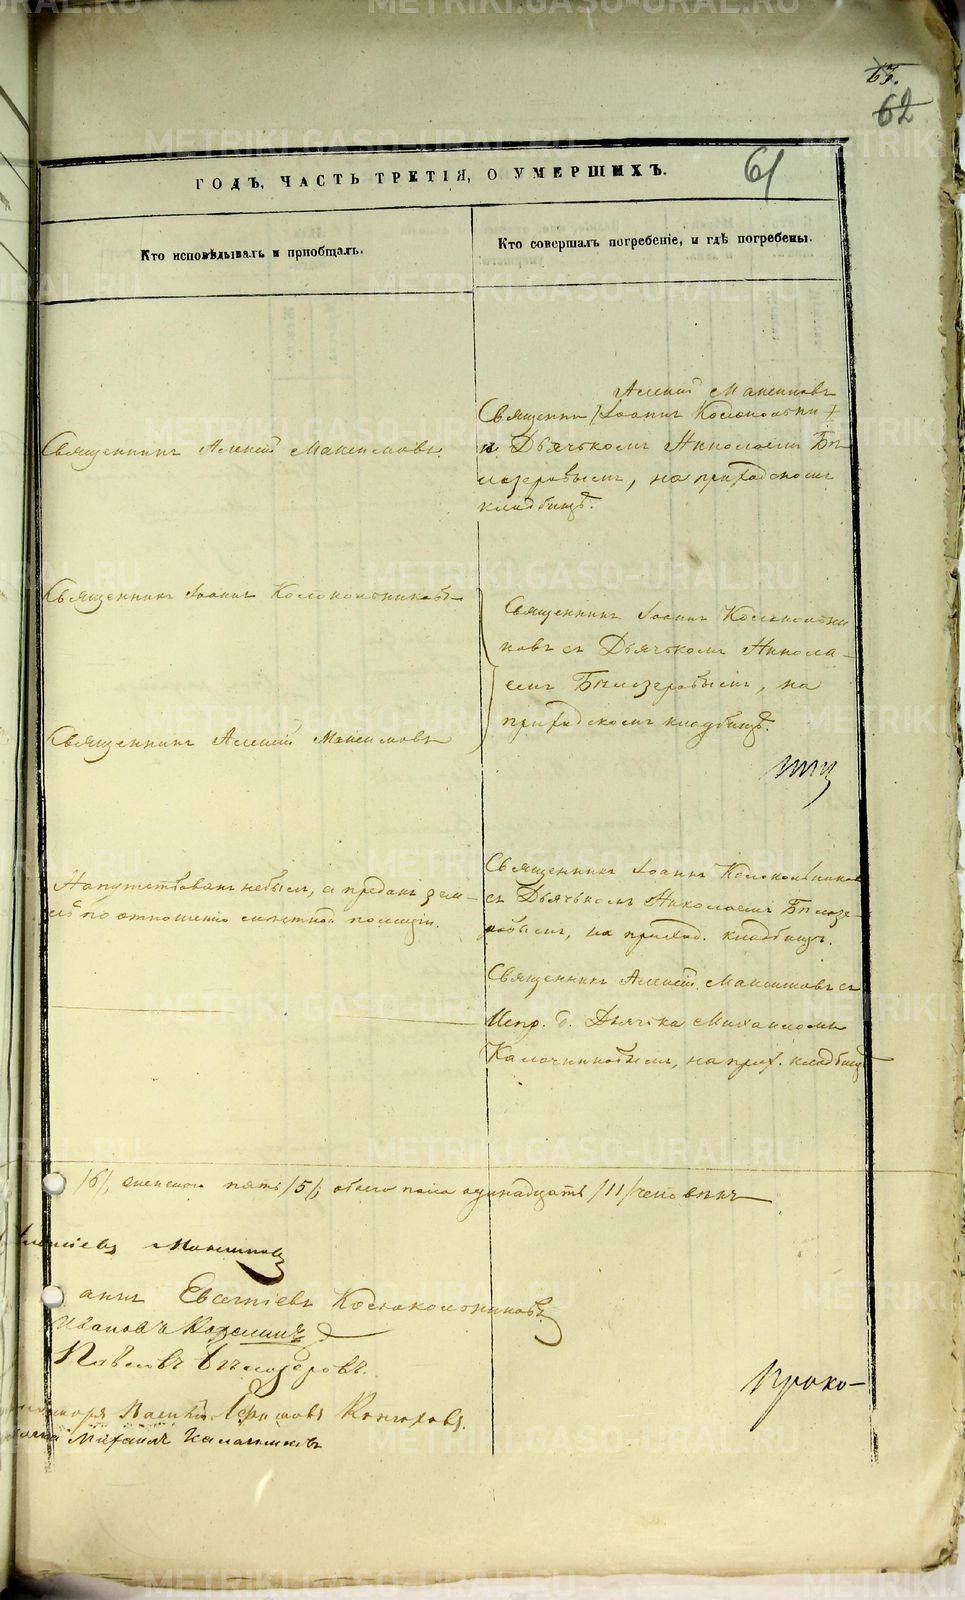 62
61
ГОДЪ, ЧАСТЬ ТРЕТІЯ, О УМЕРШИХЪ.
Кто исповѣдывалъ и пріобщалъ.
Кто совершалъ погребеніе, и гдѣ погребены.
Алексій Максимовъ
Священни /Іоаннъ Колокольни/
Священникъ Алексій Максимовъ.
и Дьячькомъ Николаемъ Бѣ-
лозеровымъ, на приходскомъ
кладбищѣ.
Священникъ Іоаннъ Колокольниковъ
Священникъ Іоаннъ Колокольни
ковъ съ Дьячькомъ Никола-
емъ Бѣлозеровымъ, на
приходскомъ кладбищѣ.
Священникъ Алексій Максимовъ
Напутствованъ небылъ, а преданъ зем-
лѣ по отношенію мѣстной полиціи.
Священникъ Іоаннъ Колокольников
съ Дьячькомъ Николаемъ Бѣлозе-
ровымъ, на приход. кладбищѣ.
Священникъ Алексій Максимовъ съ
Испр. д. Дьячка Михаиломъ
Калачниковымъ, на прих. кладбищѣ
/6/, женскаго пять /5/, обоего пола одинадцать /11/ человѣкъ
Максимовъ
Евгеніевъ Колокольниковъ.
Ивановъ
Павловъ Бѣлозеровъ.
Василій Конюховъ.
Михаилъ Калачниковъ
Проко-